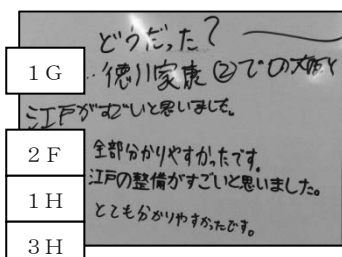 どうだった?
1G
徳川家康②での大阪と
江戸がすごいと思いました。
2F
全部分かりやすかったです。
1H
江戸の整備がすごいと思いました。
3H
とても分かりやすかったです。